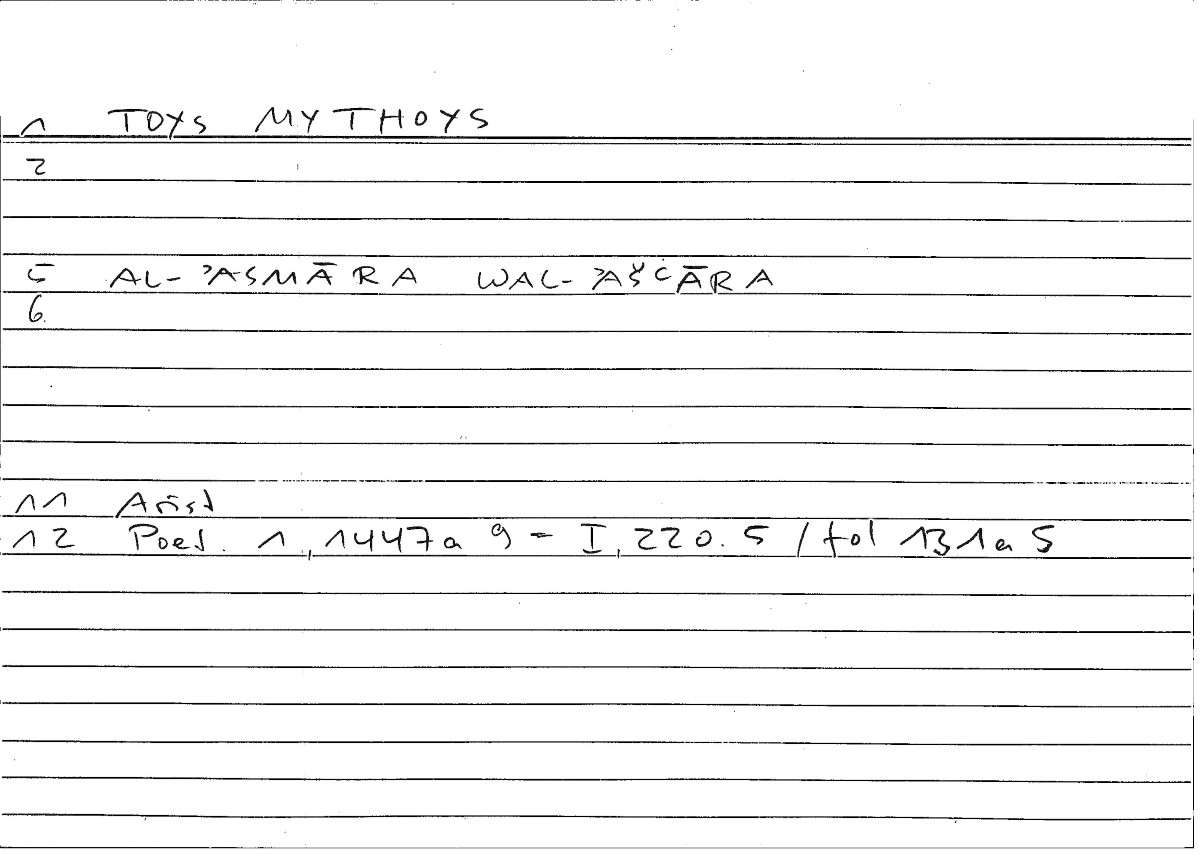 1 TOYS MYTHOYS
2
5 AL-ʾASMĀRA WAL-ʾAŠʿĀRA
6
11 Arist
12 Poet. 1,1447a 9 = I,220.5 / fol 131a5